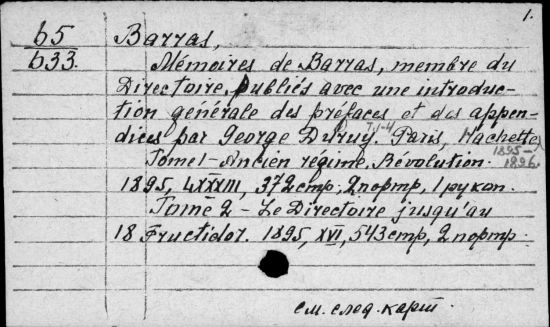 1.
65
633.
Barras,
Mémoires de Barras, membre du
Directoire, publiés avec une introduc-
tion générale des préfaces et des appen-
dices par George Duruy. T. 1-4 Paris, Hachette,
1895-
1896.
Tome 1 - Ancien regime, Révolution.
1895, LXXXIII, 372 стр, 2 портр, 1 рукоп.
Tome 2 - Le Directoire jusqu'au
18 Fructidor. 1895, XVI, 543 стр, 2 портр.
см. след. карт.